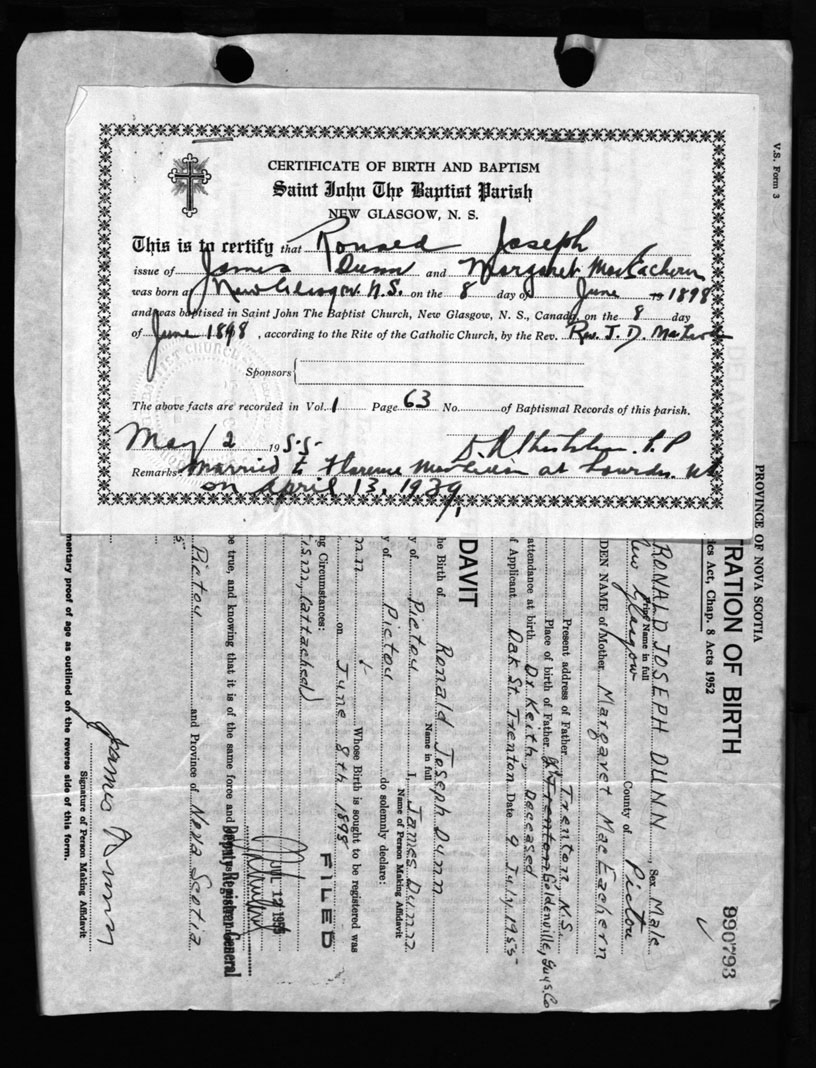 CERTIFICATE OF BIRTH AND BAPTISM
Saint John The Baptist Parish
NEW GLASGOW, N. S.
This is to certify that Ronald Joseph
issue of James Dunn and Margaret MacEachern
was born at New Glasgow N.S. on the 8 day of June 1898
and was baptised in Saint John The Baptist Church, New Glasgow, N. S., Canada, on the 8 day
of June 1898, according to the Rite of the Catholic Church, by the Rev. Rev. J. D.
Sponsors
The above facts are recorded in Vol. 1 Page 63 No. of Baptismal Records of this parish.
May 2 1955 P.P
Remarks: Married to Florence at Lourdes NS
on April 13, 1929
V.S. Form 3
PROVINCE OF NOVA SCOTIA
TRATION OF BIRTH
ics Act, Chap. 8 Acts 1952
990793
RONALD JOSEPH DUNN, Sex Male
Print Name in full
New Glasgow County of Pictou
DEN NAME of Mother Margaret MacEachern
Present address of Father Trenton, N.S.
Place of birth of Father Trenton Goldenville, Guys. Co
attendance at birth Dr Keith, Deceased
f Applicant Oak St. Trenton Date 9 July 1955
DAVIT
he Birth of Ronald Joseph Dunn
Name in full
y of Pictou I, James Dunn
Name of Person Making Affidavit
y of Pictou do solemnly declare:
Whose Birth is sought to be registered was
nn on June 8th 1898
ng Circumstances:
ism, (attached)
FILED
JUL 12 1955
Deputy Registrar General
be true, and knowing that it is of the same force and
Pictou and Province of Nova Scotia
James Dunn
Signature of Person Making Affidavit
mentary proof of age as outlined on the reverse side of this form.